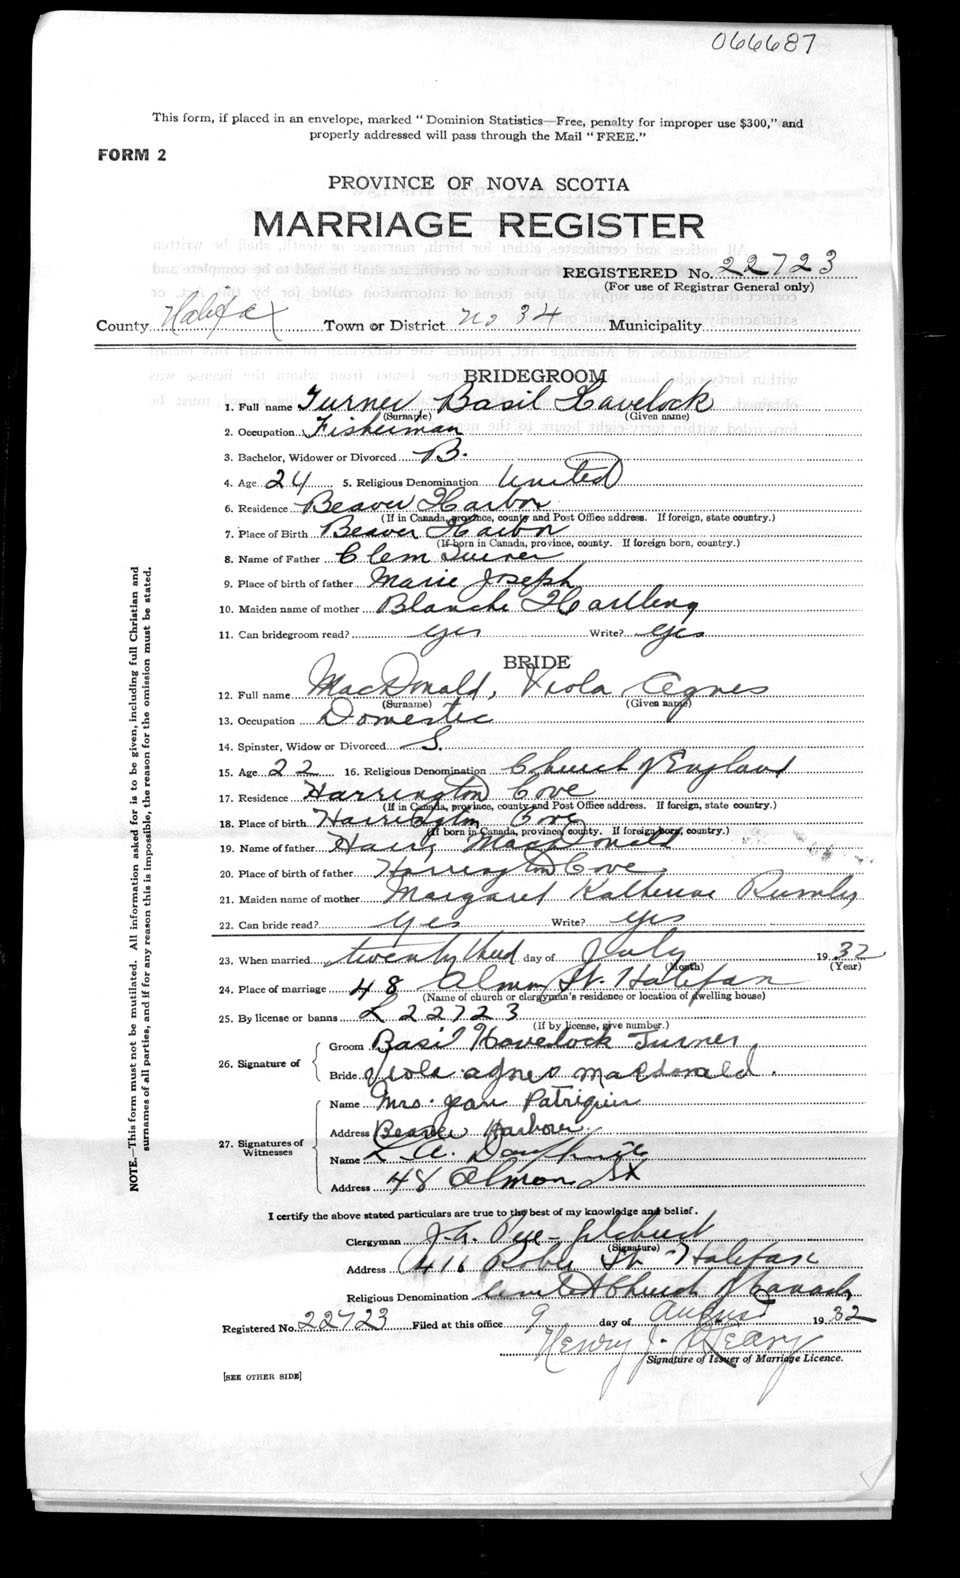 066687
This form, if placed in an envelope, marked "Dominion Statistics—Free, penalty for improper use $300," and
properly addressed will pass through the Mail "FREE."
FORM 2
PROVINCE OF NOVA SCOTIA
MARRIAGE REGISTER
REGISTERED No. 22723
(For use of Registrar General only)
County Halifax Town or District No 34 Municipality
BRIDEGROOM
1. Full name Turner Basil Havelock
(Surname) (Given name)
2. Occupation Fisherman
3. Bachelor, Widower or Divorced B.
4. Age 24 5. Religious Denomination United
6. Residence Beaver Harbor
(If in Canada, province, county and Post Office address. If foreign, state country.)
7. Place of Birth Beaver Harbor
(If born in Canada, province, county. If foreign born, country.)
8. Name of Father Clem Turner
9. Place of birth of father Marie Joseph
10. Maiden name of mother Blanche Hartling
11. Can bridegroom read? yes Write? yes
BRIDE
12. Full name MacDonald, Viola Agnes
(Surname) (Given name)
13. Occupation Domestic
14. Spinster, Widow or Divorced S.
15. Age 22 16. Religious Denomination Church of England
17. Residence Harrington Cove
(If in Canada, province, county and Post Office address. If foreign, state country.)
18. Place of birth Harrington Cove
(If born in Canada, province, county. If foreign born, country.)
19. Name of father MacDonald
20. Place of birth of father Harrington Cove
21. Maiden name of mother Margaret Katherine Rumley
22. Can bride read? yes Write? yes
23. When married twenty third day of July 1932
(Month) (Year)
24. Place of marriage 48 Almon St. Halifax
(Name of church or clergyman's residence or location of dwelling house)
25. By license or banns L 22723
(If by license, give number.)
26. Signature of
Groom Basil Havelock Turner
Bride Viola Agnes Macdonald.
27. Signatures of Witnesses
Name Mrs. Jean Patriquin
Address Beaver Harbour
Name L. A.
Address 48 Almon St
I certify the above stated particulars are true to the best of my knowledge and belief.
Clergyman J. A.
(Signature)
Address 416 Robie St. Halifax
Religious Denomination United Church of Canada
Registered No. 22723 Filed at this office 9 day of August 1932
Henry J.
Signature of Issuer of Marriage Licence.
[SEE OTHER SIDE]
NOTE.—This form must not be mutilated. All information asked for is to be given, including full Christian and
surnames of all parties, and if for any reason this is impossible, the reason for the omission must be stated.